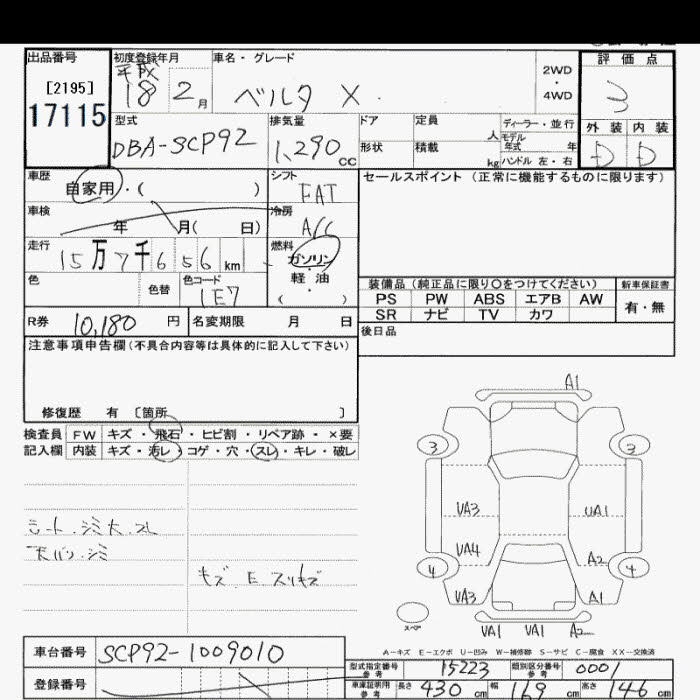 出品番号
[2195]
17115
初度登録年月
平成
18 2月
車名・グレード
ベルタ X
2WD
・
4WD
評価点
3
外装 内装
D D
型式
DBA-SCP92
排気量
1,290cc
ドア
定員 人
形状
積載 kg
ディーラー・並行
モデル年式 年
ハンドル 左・右
車歴
自家用・( )
シフト
FAT
セールスポイント (正常に機能するものに限ります)
車検
年 月( 日)
冷房
A/C
走行
15万7千656km
燃料
ガソリン
・
軽油
( )
色
色替
色コード
1E7
装備品 (純正品に限り〇をつけてください) 新車保証書
PS PW ABS エアB AW
有・無
SR ナビ TV カワ
R券 10,180円
名変期限 月 日
後日品
注意事項申告欄(不具合内容等は具体的に記入して下さい)
修復歴 有 〔箇所 〕
検査員 FW キズ・飛石・ヒビ割・リペア跡・×要
記入欄 内装 キズ・汚レ・コゲ・穴・スレ・キレ・破レ
シート・シミ大.スレ
天バリ.シミ
キズ E スリキズ
A1
3 3
UA3 UA1
UA4 A2
4 4
UA3 A1
UA1 UA1 A2
スペア
A-キズ E-エクボ U-凹み W-補修跡 S-サビ C-腐食 XX-交換済
車台番号 SCP92-1009010
登録番号
型式指定番号 参考 15223 類別区分番号 参考 0001
車庫証明用 参考 長さ 430cm 幅 169cm 高さ 146cm